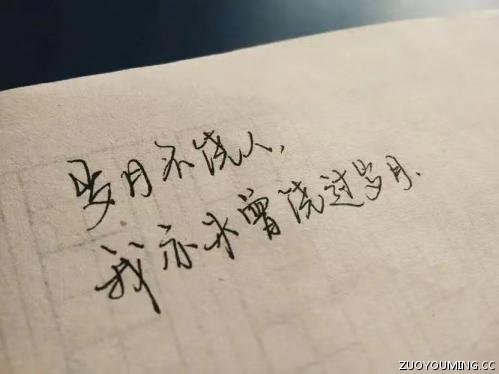 岁月不饶人,
我亦未曾饶过岁月.
ZUOYOUMING.CC